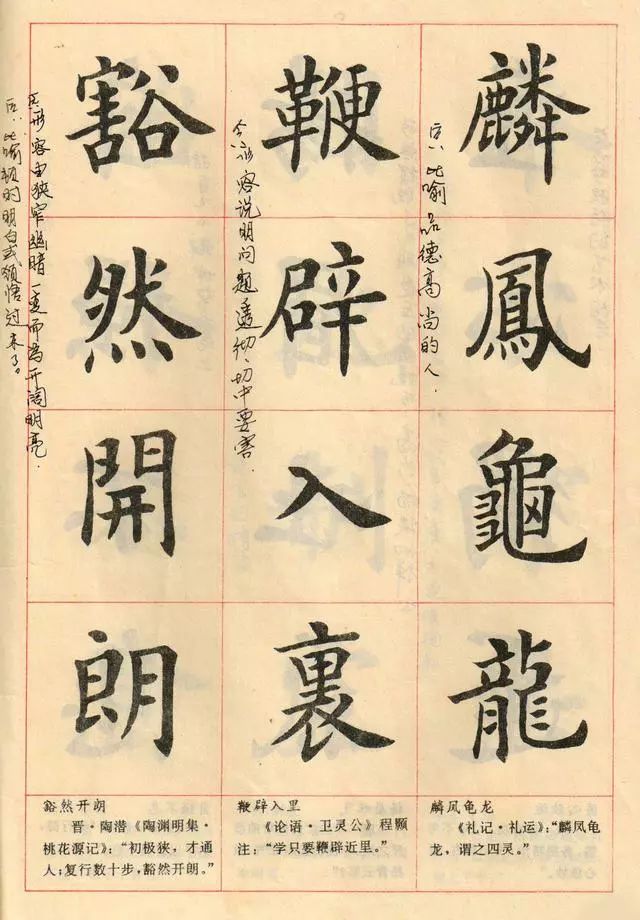 麟鳳龜龍
比喻品德高尚的人.
鞭辟入裏
形容说明问题透彻、切中要害.
豁然開朗
形容由狭窄幽暗一变而为开阔明亮.
比喻顿时明白或领悟过来了。
麟凤龟龙
《礼记·礼运》：“麟凤龟
龙，谓之四灵。”
鞭辟入里
《论语·卫灵公》程颢
注：“学只要鞭辟近里。”
豁然开朗
晋·陶潜《陶渊明集·
桃花源记》：“初极狭，才通
人；复行数十步，豁然开朗。”